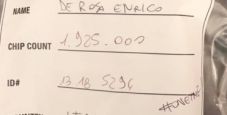 NAME DE ROSA ENRICO
CHIP COUNT 1.925.000
ID# 13 18 5294